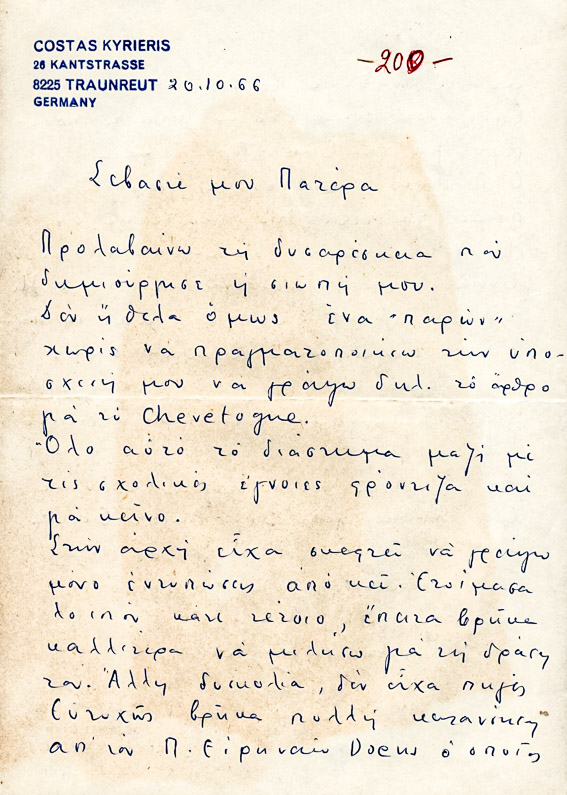 COSTAS KYRIERIS
26 KANTSTRASSE
8225 TRAUNREUT 20.10.66
GERMANY
-200-
Σεβαστέ μου Πατέρα
Προλαβαίνω τή δυσαρέσκεια πού
δημιούργησε ἡ σιωπή μου.
Δέν ἤθελα ὅμως ἕνα "παρών"
χωρίς νά πραγματοποιήσω τήν ὑπο-
σχεσή μου νά γράψω δηλ. τό ἄρθρο
γιά τό Chevetogne.
Ὅλο αὐτό τό διάστημα μαζί μέ
τίς σχολικές ἔγνοιες φρόντιζα καί
γιά κεῖνο.
Στήν ἀρχή εἶχα σκεφτεῖ νά γράψω
μόνο ἐντυπώσεις ἀπό κεῖ. Ἑτοίμασα
λοιπόν κάτι τέτοιο, ἔπειτα βρῆκα
καλλίτερα νά μιλήσω γιά τή δράση
του. Ἄλλη δυσκολία, δέν εἶχα πηγές
Εὐτυχῶς βρῆκα πολλή κατανόηση
ἀπ' τόν Π. Εἰρηναῖο Doens ὁ ὁποῖος